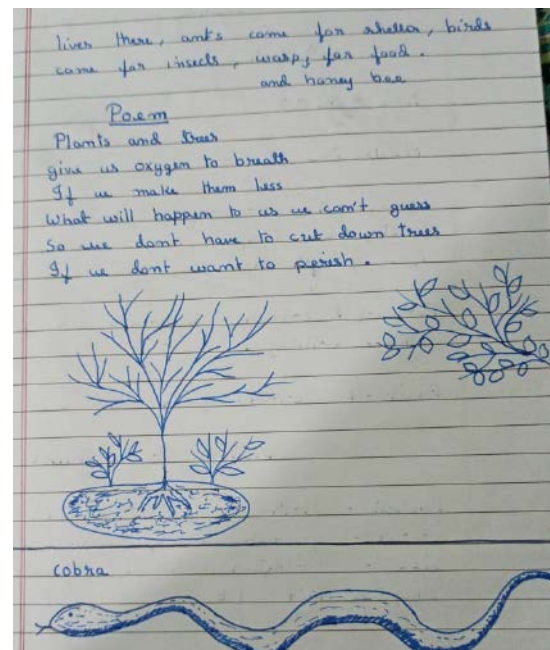 lives there, ants come for shelter, birds
come for insects, warps for food.
and honey bee
Poem
Plants and trees
give us oxygen to breath
If we make them less
What will happen to us we can't guess
So we dont have to cut down trees
If we dont want to perish.
cobra